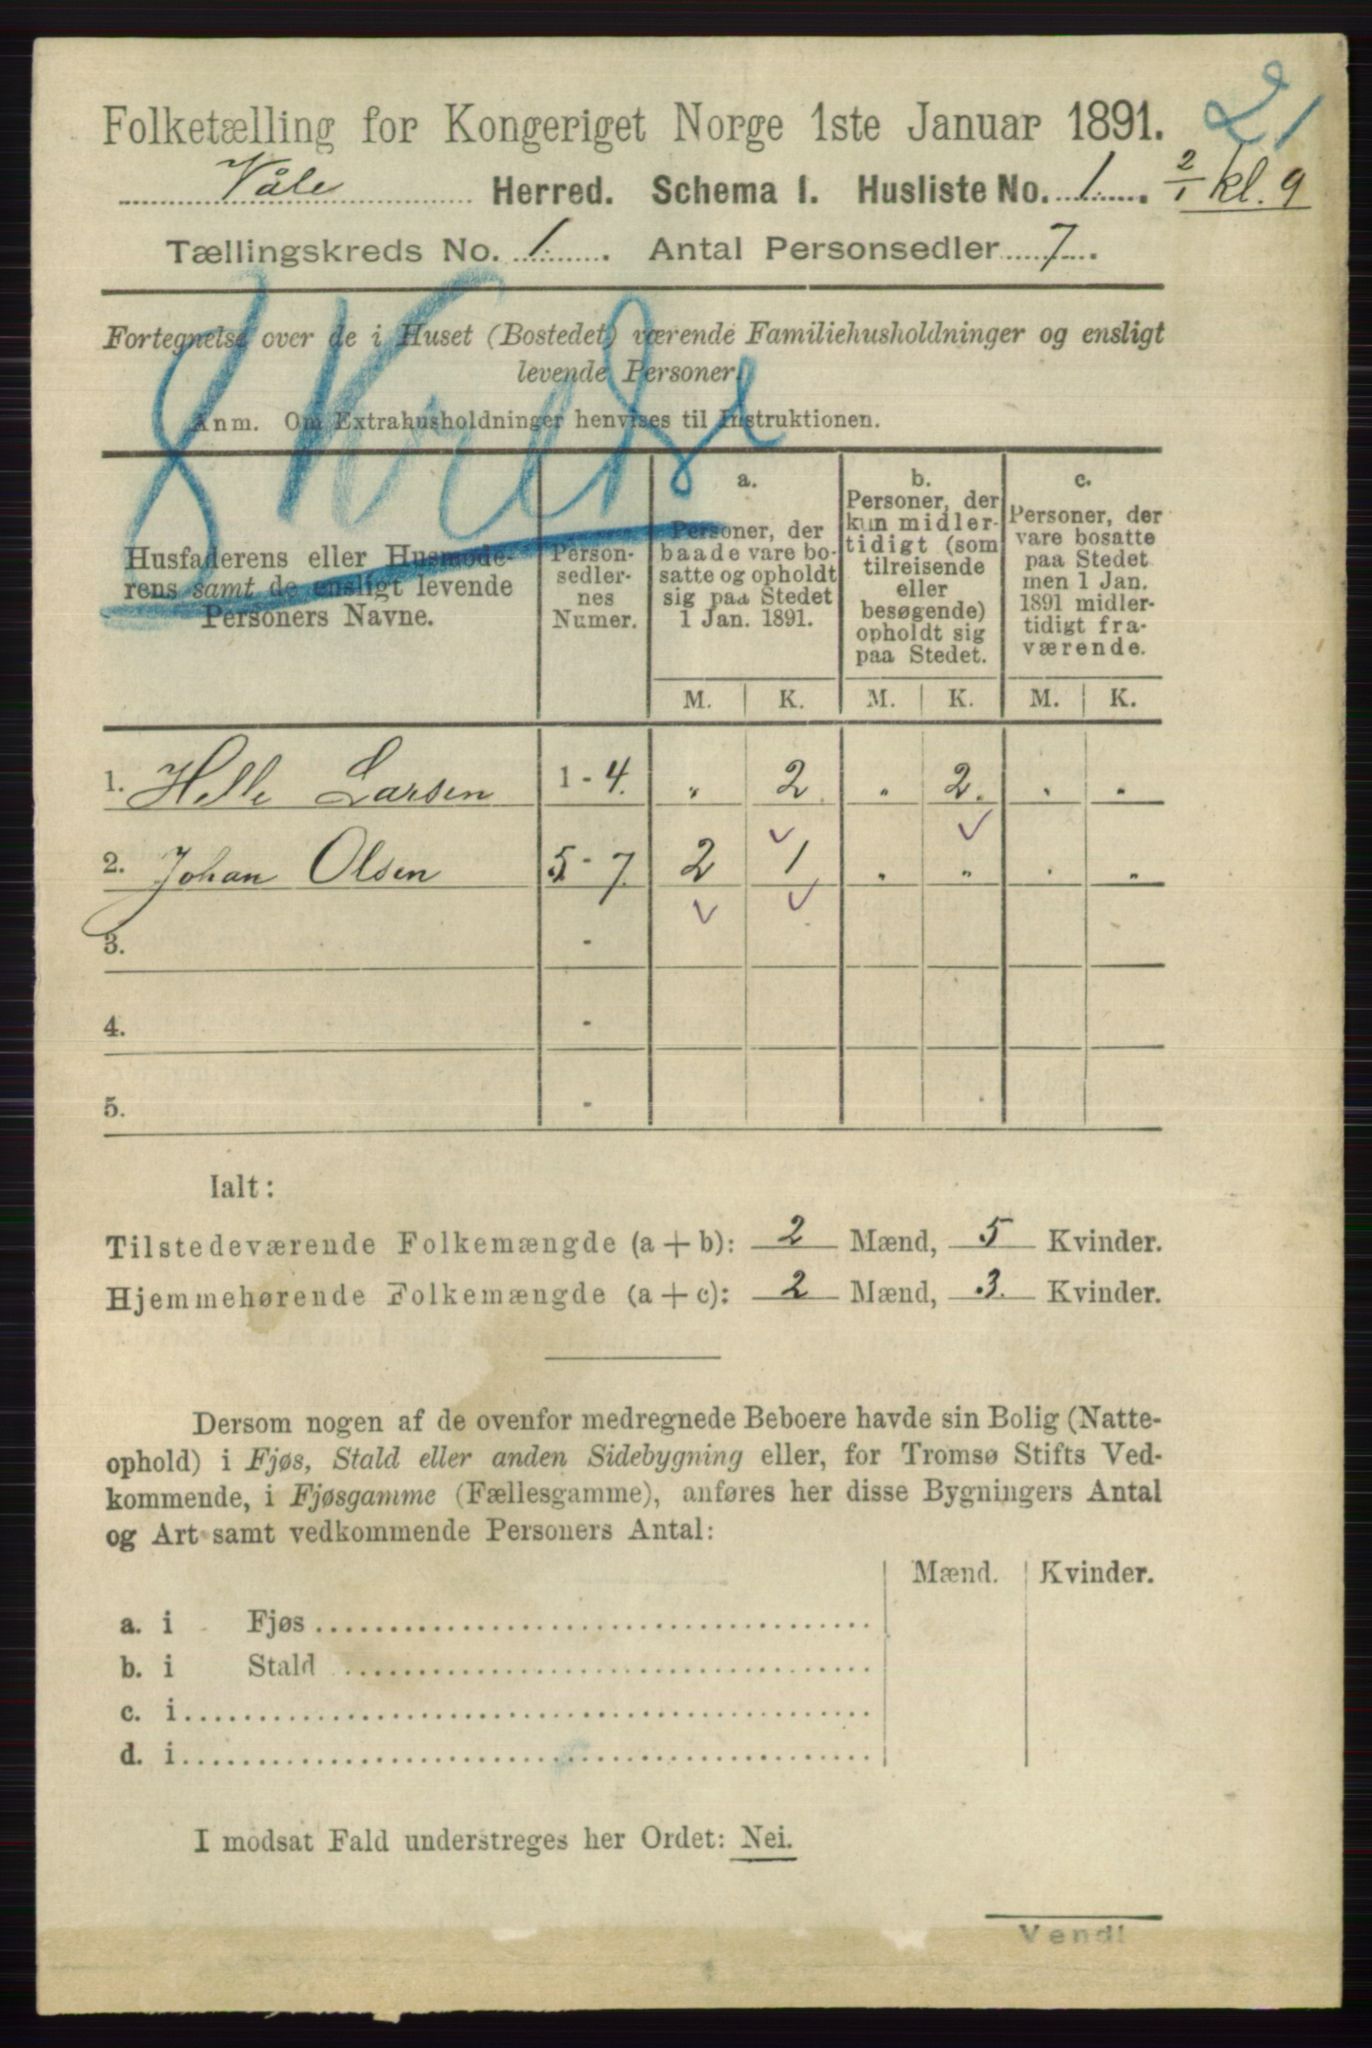 21
Folketælling for Kongeriget Norge 1ste Januar 1891.
Våle Herred. Schema 1. Husliste No. 1. 2/1 kl. 9
Tællingskreds No. 1. Antal Personsedler 7.
Fortegnelse over de i Huset (Bostedet) værende Familiehusholdninger og ensligt
levende Personer.
Anm. Om Extrahusholdninger henvises til Instruktionen.
Husfaderens eller Husmode-
rens samt de ensligt levende
Personers Navne.
Person-
sedler-
nes
Numer.
a.
Personer, der
baade vare bo-
satte og opholdt
sig paa Stedet
1 Jan. 1891.
b.
Personer, der
kun midler-
tidigt (som
tilreisende
eller
besøgende)
opholdt sig
paa Stedet.
c.
Personer, der
vare bosatte
paa Stedet
men 1 Jan.
1891 midler-
tidigt fra-
værende.
M. K. M. K. M. K.
1. Helle Larsen 1 - 4. " 2 " 2. " "
2. Johan Olsen 5 - 7. 2 1 " " " "
3. -
4. -
5. -
Ialt:
Tilstedeværende Folkemængde (a + b): 2 Mænd, 5 Kvinder.
Hjemmehørende Folkemængde (a + c): 2 Mænd, 3. Kvinder.
Dersom nogen af de ovenfor medregnede Beboere havde sin Bolig (Natte-
ophold) i Fjøs, Stald eller anden Sidebygning eller, for Tromsø Stifts Ved-
kommende, i Fjøsgamme (Fællesgamme), anføres her disse Bygningers Antal
og Art samt vedkommende Personers Antal:
Mænd. Kvinder.
a. i Fjøs
b. i Stald
c. i
d. i
I modsat Fald understreges her Ordet: Nei.
Vend!